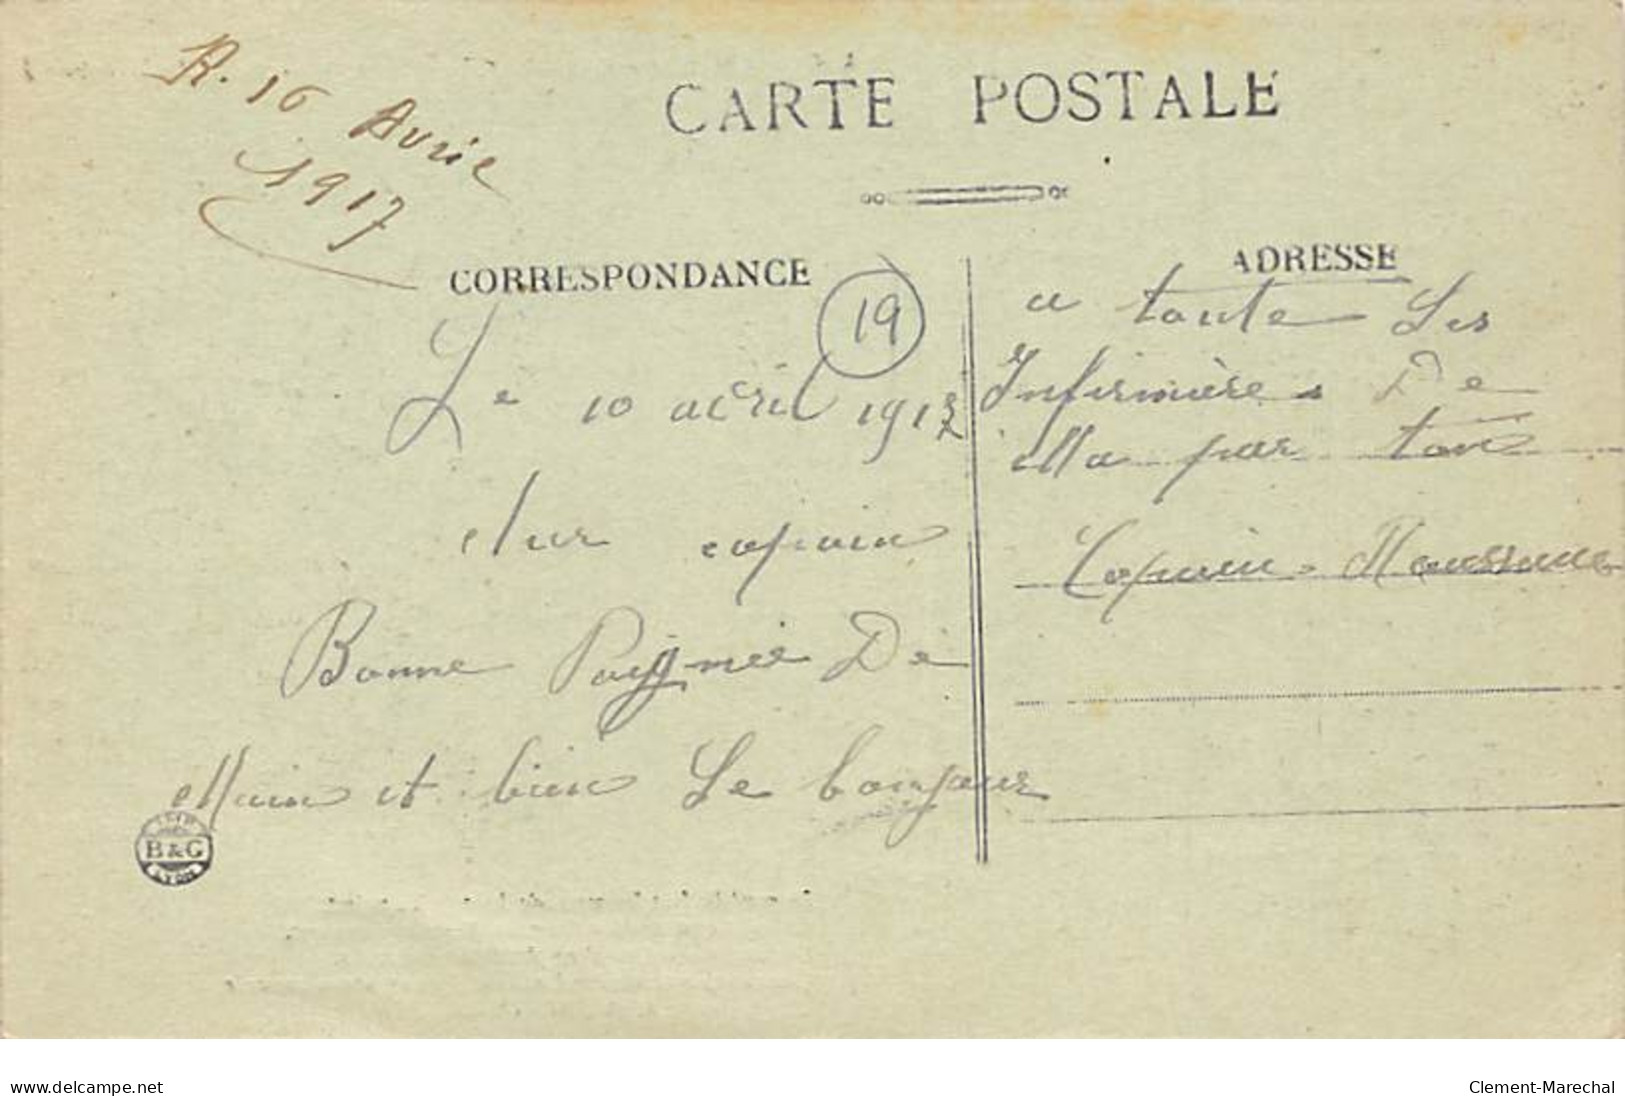 R. 16 Avril
1917
CARTE POSTALE
CORRESPONDANCE
19
Le 10 avril 1917
copain
Bonne Poignée De
Main et bien Le bonjour
ADRESSE
a toute Les
Infirmière De
Ma par ton
Copain
IMP
B & G
LYON
www.delcampe.net
Clement-Marechal